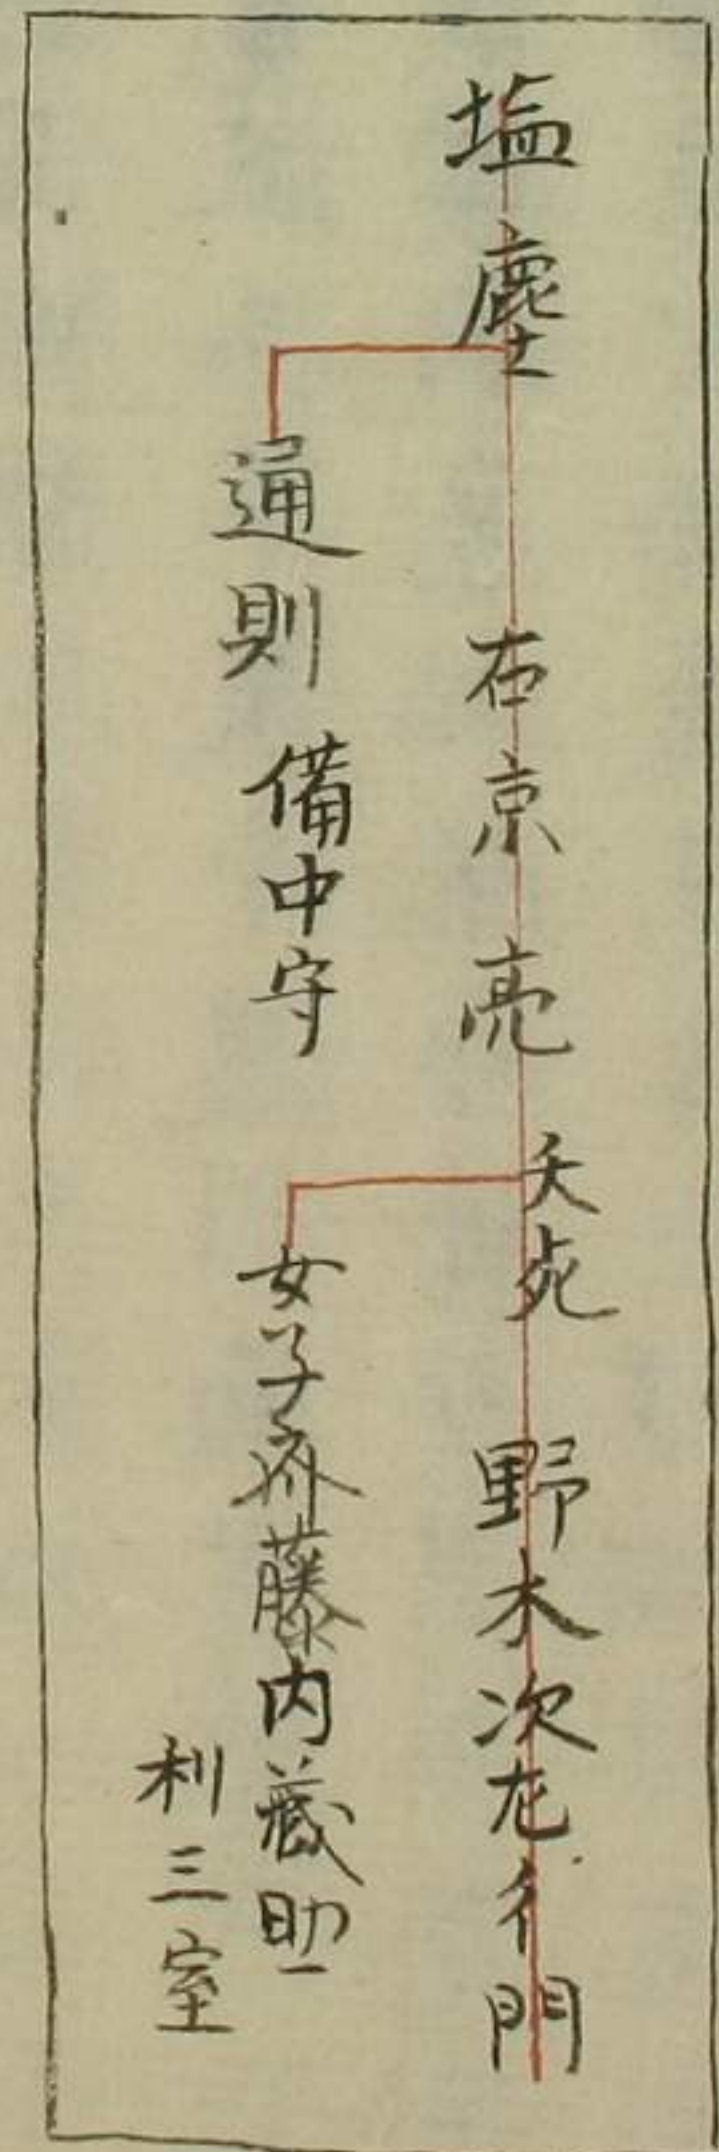 塩塵
右京亮
夭死
野木次左衛門
通則
備中守
女子斉藤内蔵助
利三室